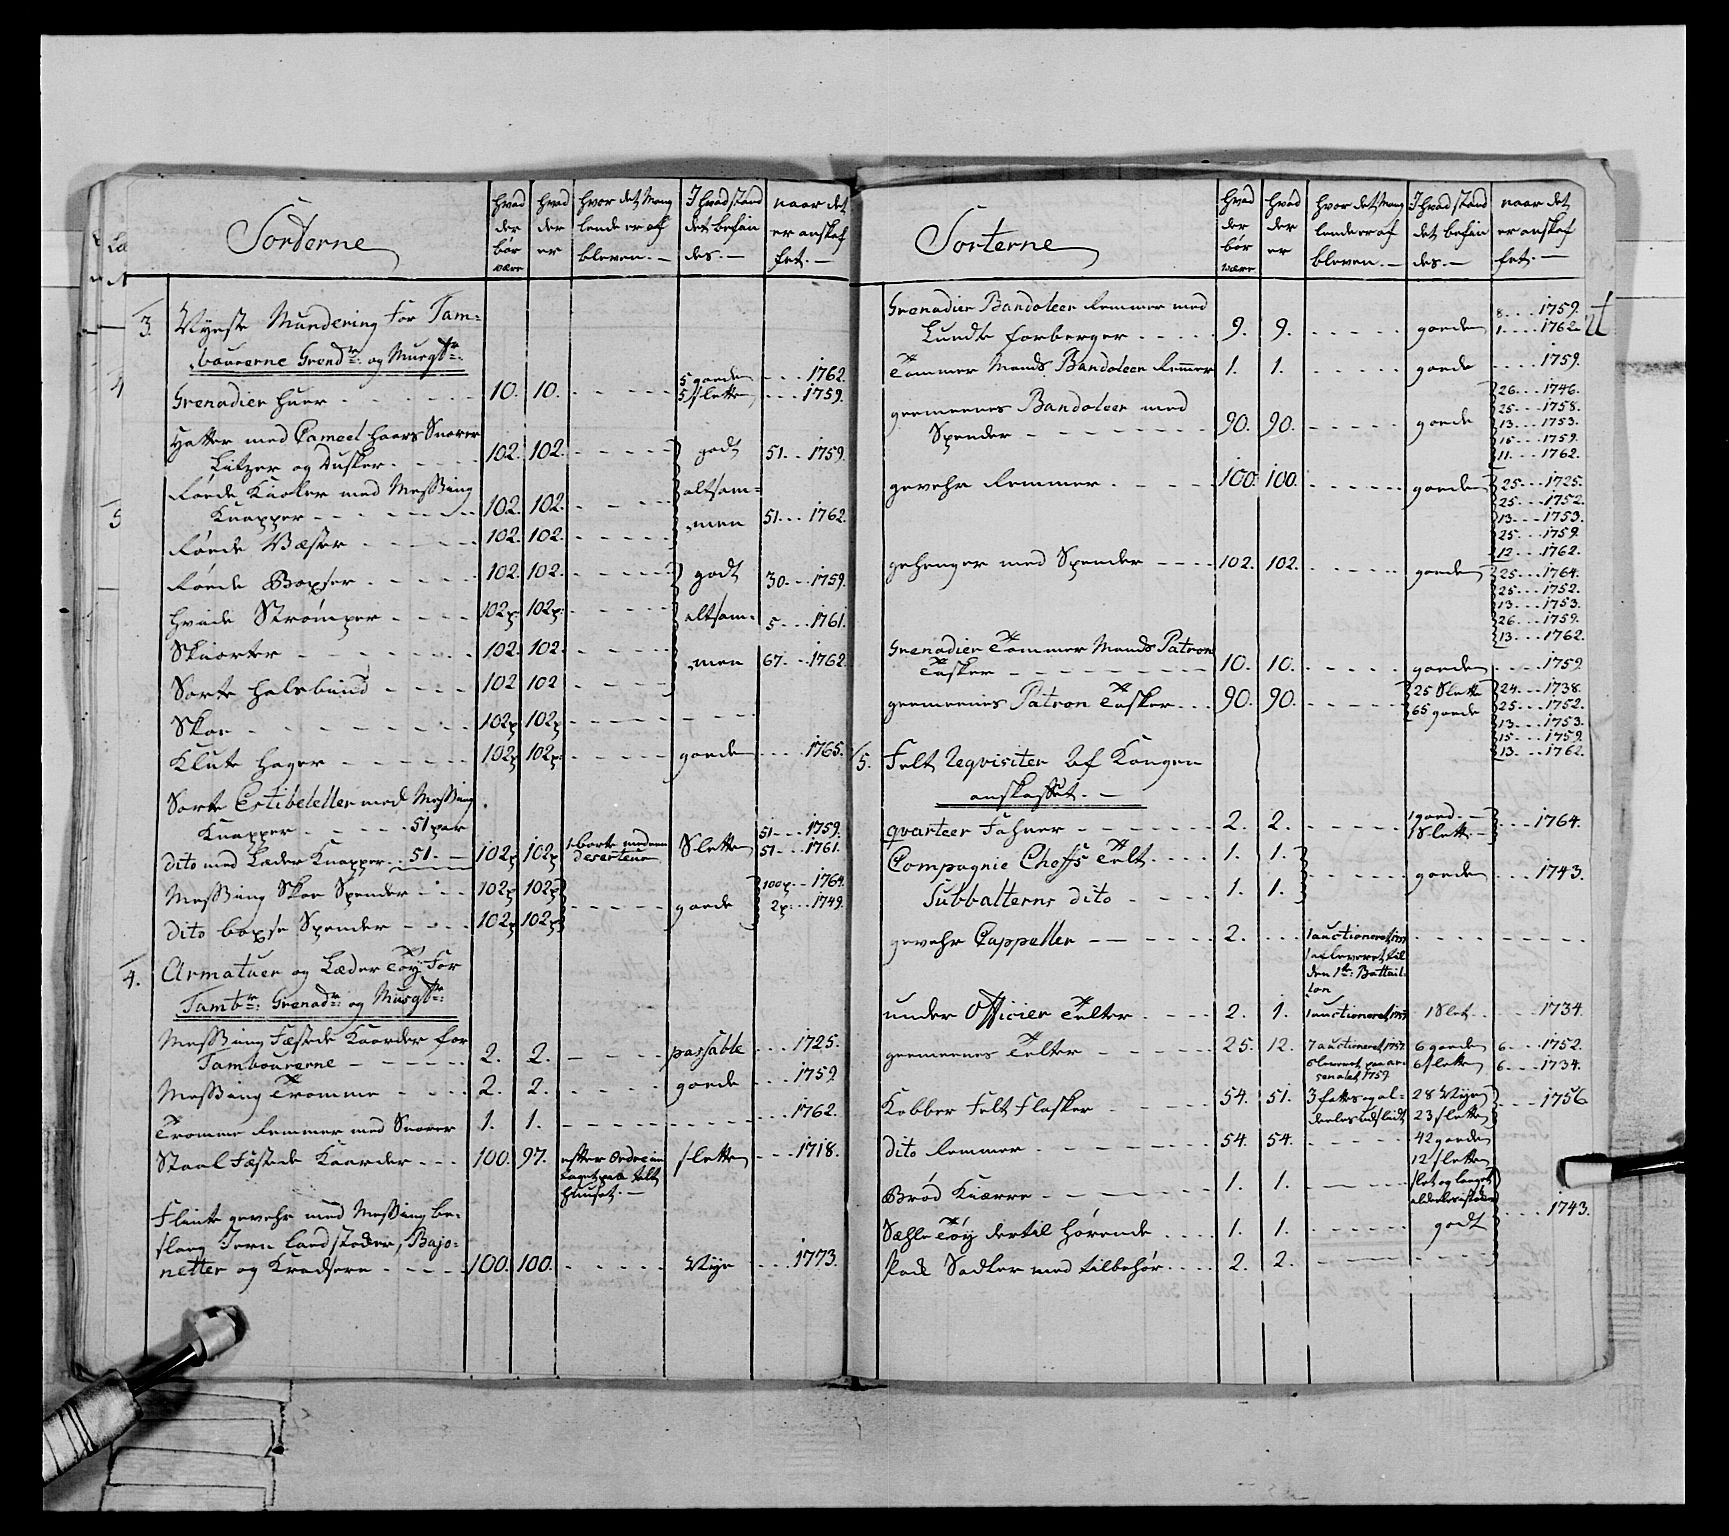 Sorterne
hvad der bør være
hvad der er
hvor det Manglende er af bleven.
I hvad stand det befindes.
naar det er anskaffet.
3. Nyeste Mundering for Tam=
bourerne Grend:r og Musqt:r
Grenadier huer - - - 10. 10. - - - 5 goede - - - 1762.
5 slette - - - 1759.
Hatter med Cameel haars Snorer
Litzer og Dusker. - - - 102. 102. - - - godt 51. - - 1759.
Røede Kioler med Messing altsam=
Knapper - - - 102. 102. - - - men 51. - - 1762.
Røede Væster - - - 102. 102. - - -
Røede Boxser - - - 102. 102. - - - godt 30. - - 1759.
hvide Strømper - - - 102p. 102p. - - - altsam= 5 - - - 1761.
Skiorter - - - 102. 102. - - - men 67. - - 1762.
Sorte halsbind - - - 102 102 - - -
Skoe - - - 102p 102p - - -
Klute hager - - - 102p 102p. - - - goede - - - 1765.
Sorte Estibeletter med Messing
Knapper - - - 51 par 51. - - 1759.
dito med Læder Knapper. - 51. - 102p 102p 1 borte med een Deserteur Slette 51. - - 1761.
Messing Skoe Spender - - 102p 102p 100p. - - 1764.
goede 2p. - - 1749.
dito boxse Spender - - - 102p 102p
4. Armatuer og Læder Tøy for
Tamb:r Grenad:r og Musqt:r
Messing Fæstede Kaarder for
Tambourerne - - - 2. 2. - - - passable - - - 1725.
Messing Tromme - - - 2. 2. - - - goede - - - 1759
Tromme Remmer med Snorer 1. 1. - - - 1762.
Staal Fæstede Kaarder - - - 100. 97. efter Ordre ind
slette - - - 1718.
huuset. -
Flinte gevehr med Messing be=
slag Jern Ladstokker, Bajo=
netter og Kradsere - - - 100. 100. - - - Nye - - - 1773.
Sorterne
hvad der bør være
hvad der er
hvor det Manglende er af bleven.
I hvad stand det befindes.
naar det er anskaffet.
Grenadier Bandoleer Remmer med 8. - - - 1759.
Lundte forberger - - - 9. 9. - - - goede 1. - - - 1762
Tømmer Mands Bandoleer Remmer 1. 1. - - - goede - - - 1759.
gemeenes Bandoleer med 26. - - 1746.
25. - - 1758.
Spender - - - 90. 90. - - - goede 13. - - 1753.
15. - - 1759.
11. - - 1762.
gevehr Remmer - - - 100. 100. - - - goede 25. - - 1725.
25. - - 1752.
13. - - 1753.
25. - - 1759.
12. - - 1762.
gehenger med Spender - - - 102. 102. - - - goede 25. - - 1764.
25. - - 1752.
13. - - 1753.
26. - - 1759.
13. - - 1762.
Grenadier Tømmer Mands Patron
Tasker - - - 10. 10. - - - goede - - - 1759
gemeenes Patron Tasker - - - 90. 90. - - - 25 Slette 24. - - 1738.
65 goede 25. - - 1752.
13. - - 1753.
15. - - 1759.
13. - - 1762.
5. Felt Reqvisiter Af Kongen
anskaffet. -
qvarteer Fahner - - - 2. 2. - - - 1 goed. - 1 Slett. - - - - 1764.
Compagnie Cheffs Telt. - - - 1. 1. - - - goede - - - 1743.
Subbalterns dito - - - 1. 1.
gevehr Cappeller - - - 2. - - - 1 auctioneret 1757
1 afleveret til
den 1te Battail=
lon
under Officier Telter. - - - 2. 1. 1 auctioneret 1757 1 Slet. - - - 1734.
gemeenes Telter - - - 25. 12. 7 auctioneret 1757. 6 goede 6 - - - 1752.
6 leveret paa ar=
senalet 1759 6 slette 6. - - - 1734.
Kobber Felt Flasker - - - 54. 51. 28 Nye - - - 1756
23 slette
dito Remmer - - - 54. 54. - - - 42 goede
12 slette
Brød Kiærre - - - 1. 1. - - - slet og laget
- - - 1743.
Sæhle Tøy dertil hørende - - - 1. 1. - - - godt
Pak Sadler med tilbehør. - - - 2. 2. - - -